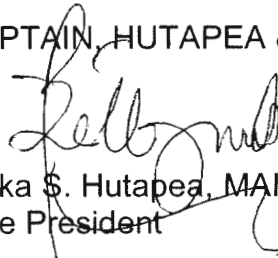 PTAIN, HUTAPEA &
ka S. Hutapea, MAI
e President